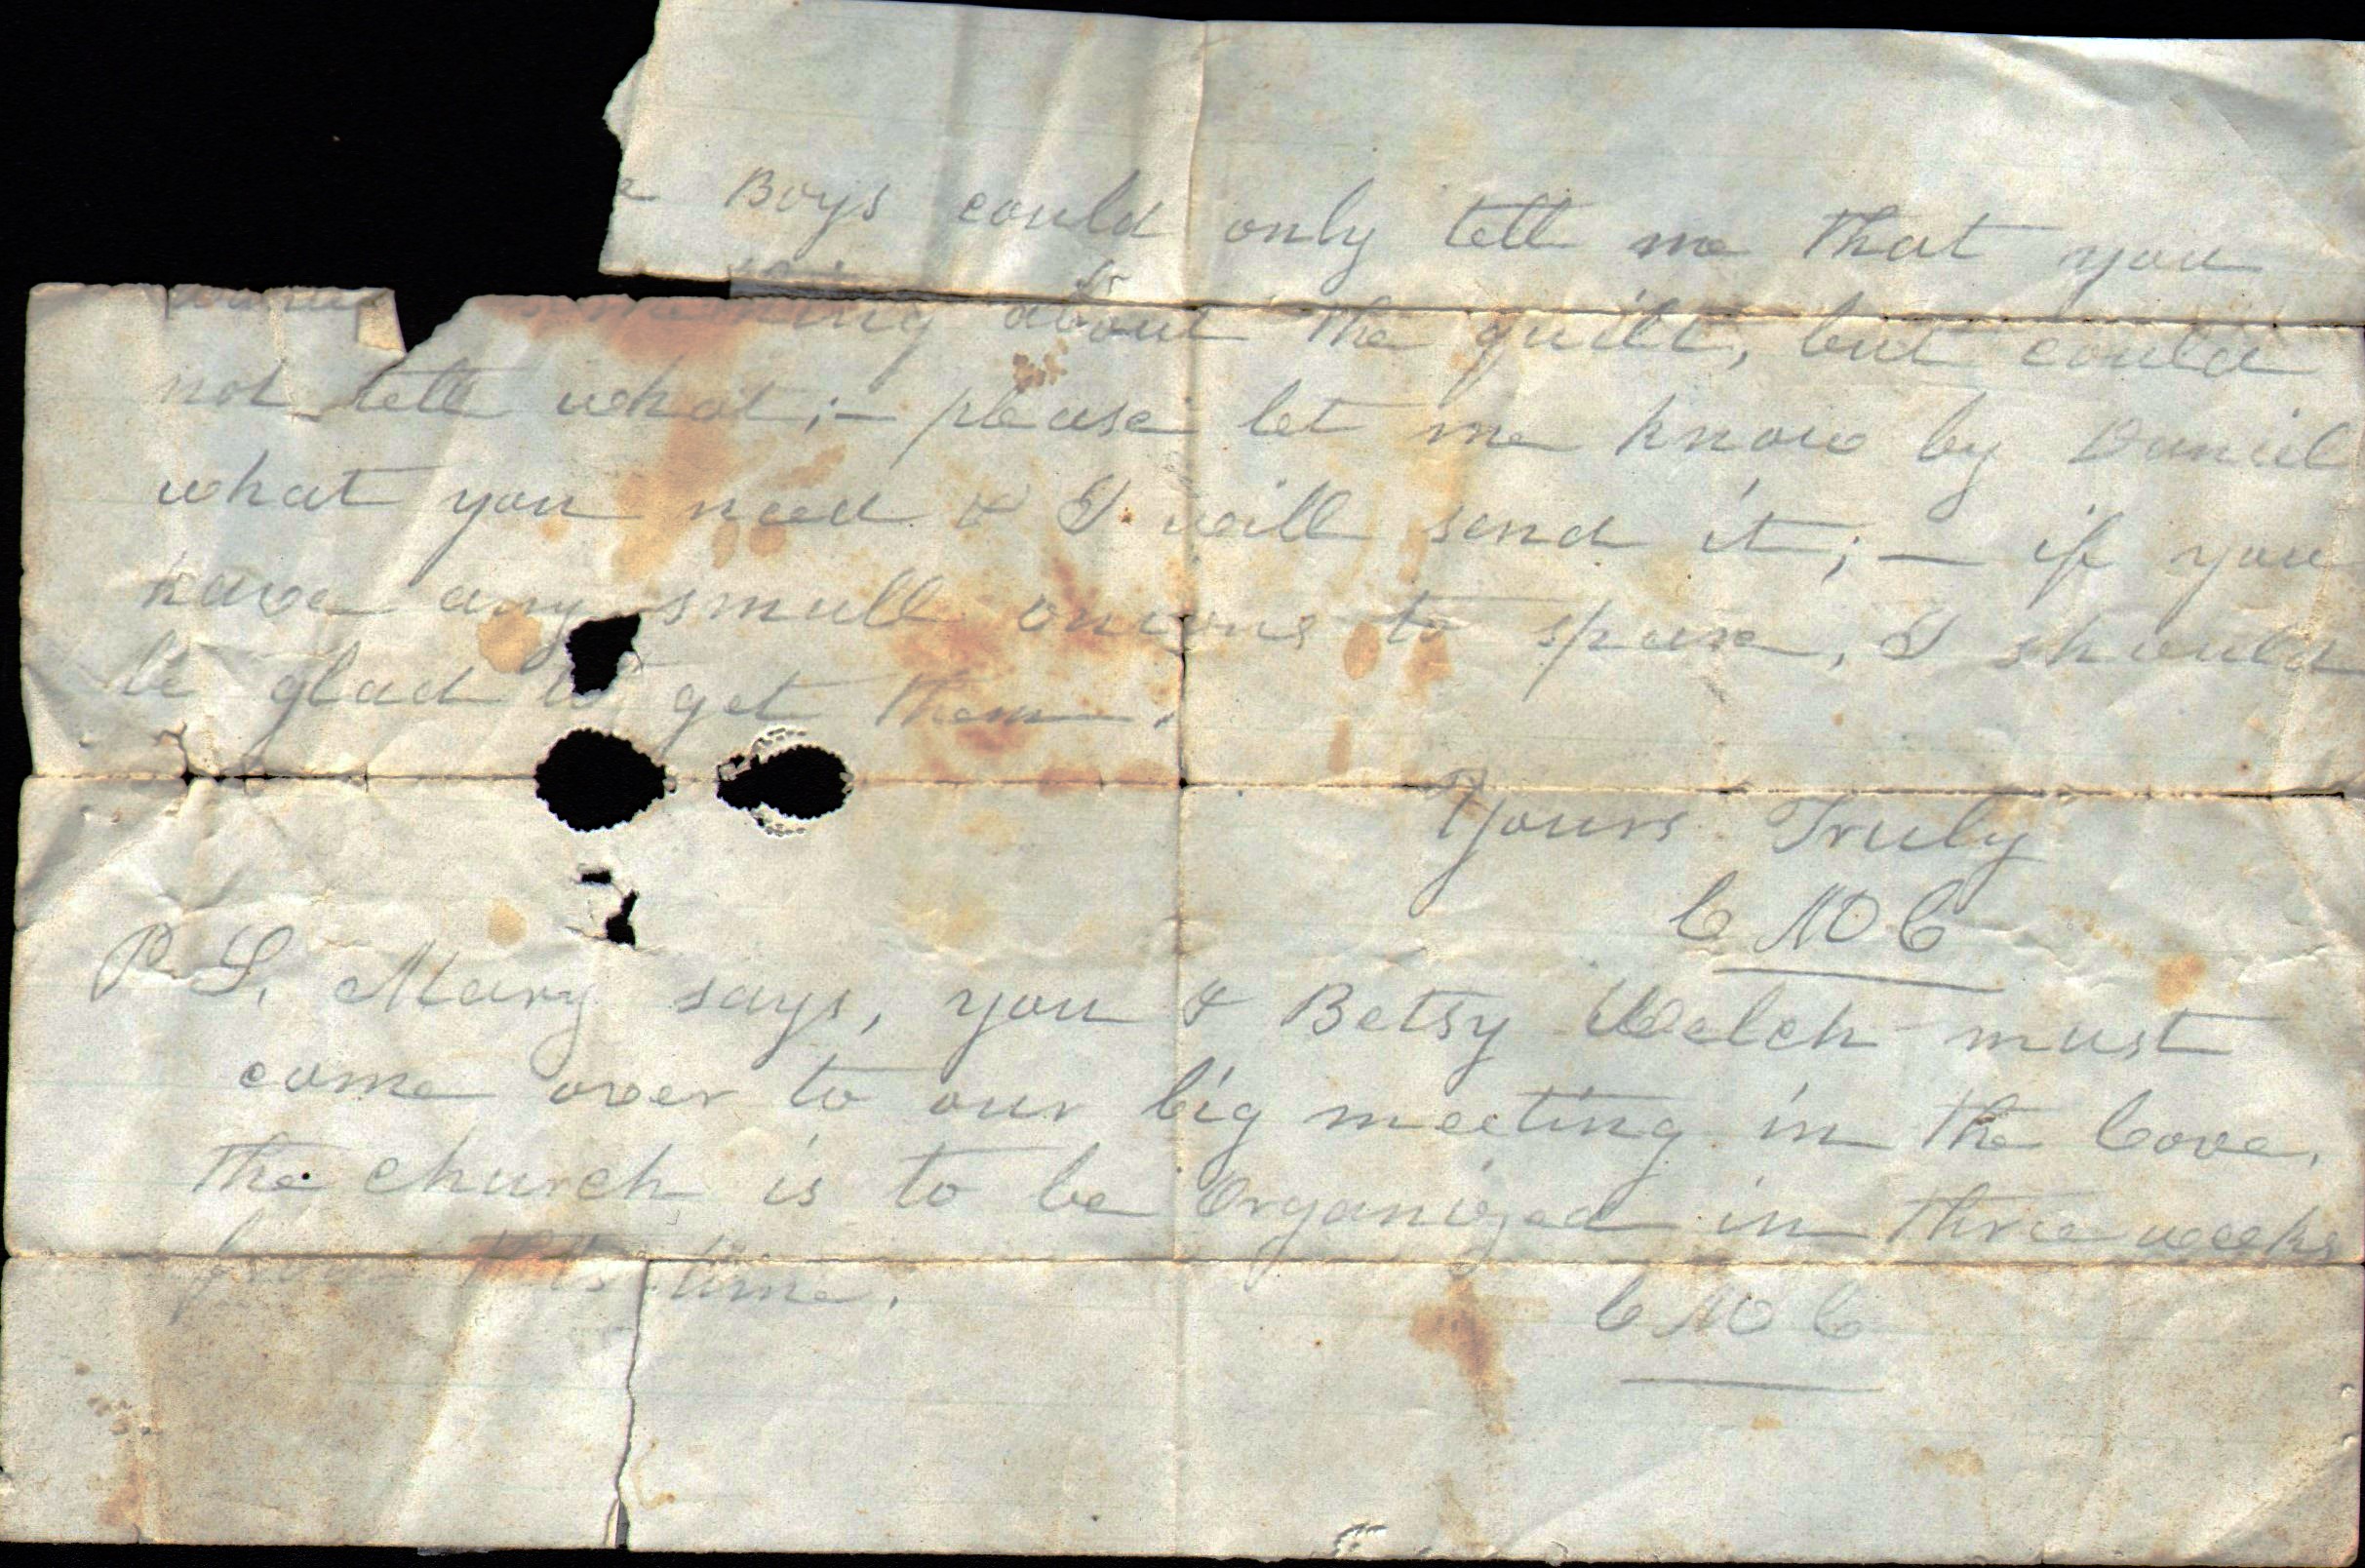 Boys could only tell me that you
something about the quilt, but could
not tell what;– please let me know by Daniel
what you need & I will send it;– if you
have any small onions to spare, I should
be glad to get them.
Yours Truly
C M C
P. S. Mary says, you & Betsy Welch must
come over to our big meeting in the Cove.
the church is to be Organized in three weeks
from this time.
C M C